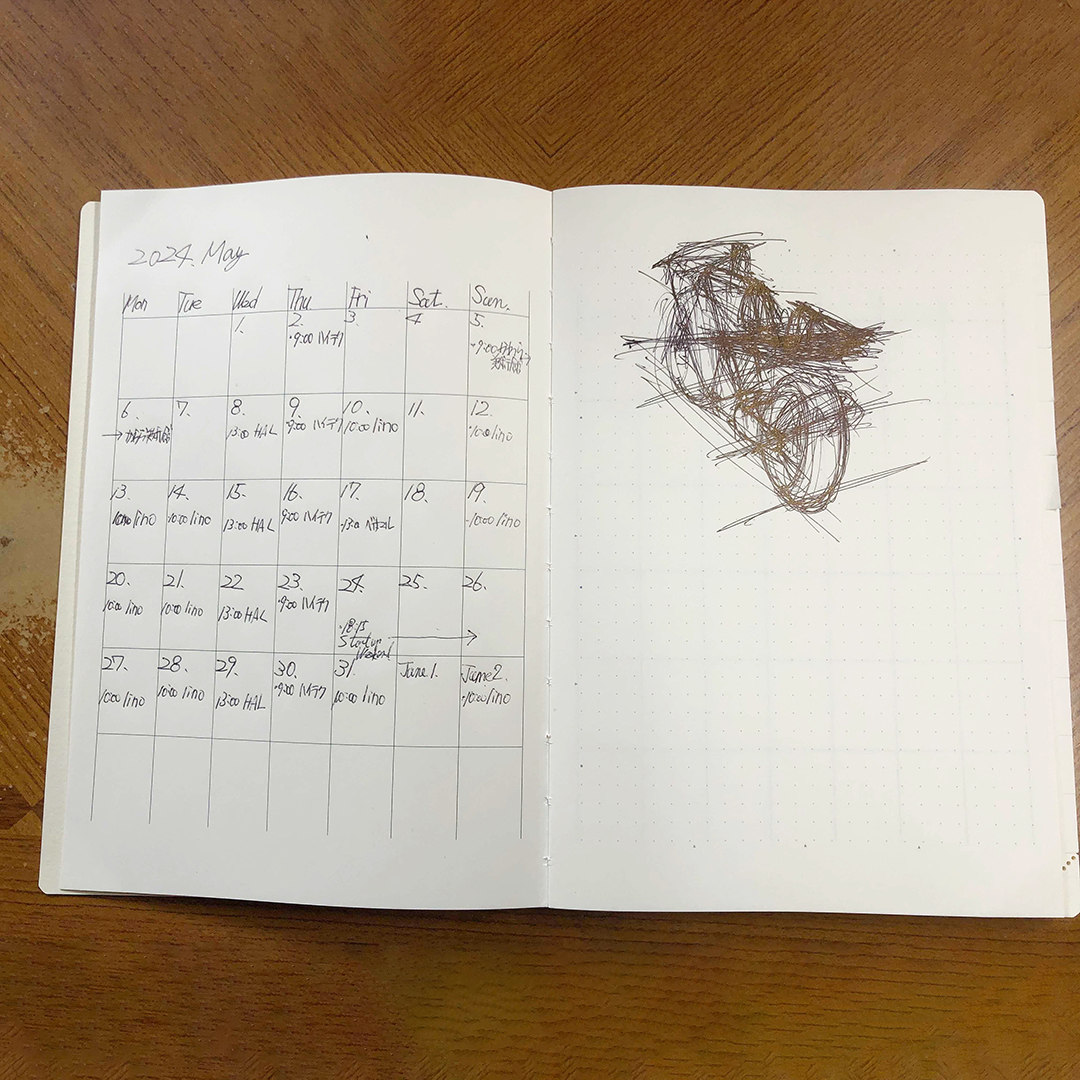 2024. May
Mon Tue Wed Thu Fri Sat. Sun.
1. 2. 3. 4 5.
・9:00 ハイテク ・9:00
6. 7. 8. 9. 10. 11. 12.
→ 13:00 HAL 9:00 ハイテク 10:00 lino ・10:00 lino
13. 14. 15. 16. 17. 18. 19.
10:00 lino 10:00 lino 13:00 HAL 9:00 ハイテク ・13:00 ・10:00 lino
20. 21. 22 23. 24. 25. 26.
10:00 lino 10:00 lino 13:00 HAL ・9:00 ハイテク
Startup →
Weekend
27. 28. 29. 30. 31. June 1. June 2.
10:00 lino 10:00 lino 13:00 HAL ・9:00 ハイテク 10:00 lino ・10:00 lino